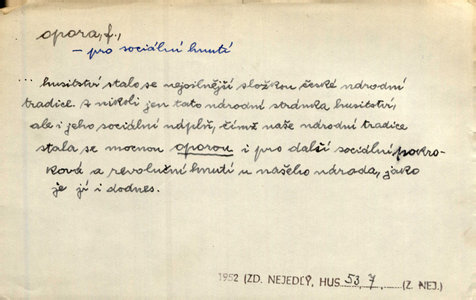 opora, f.,
– pro sociální hnutí
... husitství stalo se nejsilnější složkou české národní
tradice. A nikoli jen tato národní stránka husitství,
ale i jeho sociální náplň, čímž naše národní tradice
stala se mocnou oporou i pro další sociální pokro-
ková a revoluční hnutí u našeho národa, jako
je jí i dodnes.
1952 (ZD. NEJEDLÝ, HUS 53, 7, (Z. NEJ.)